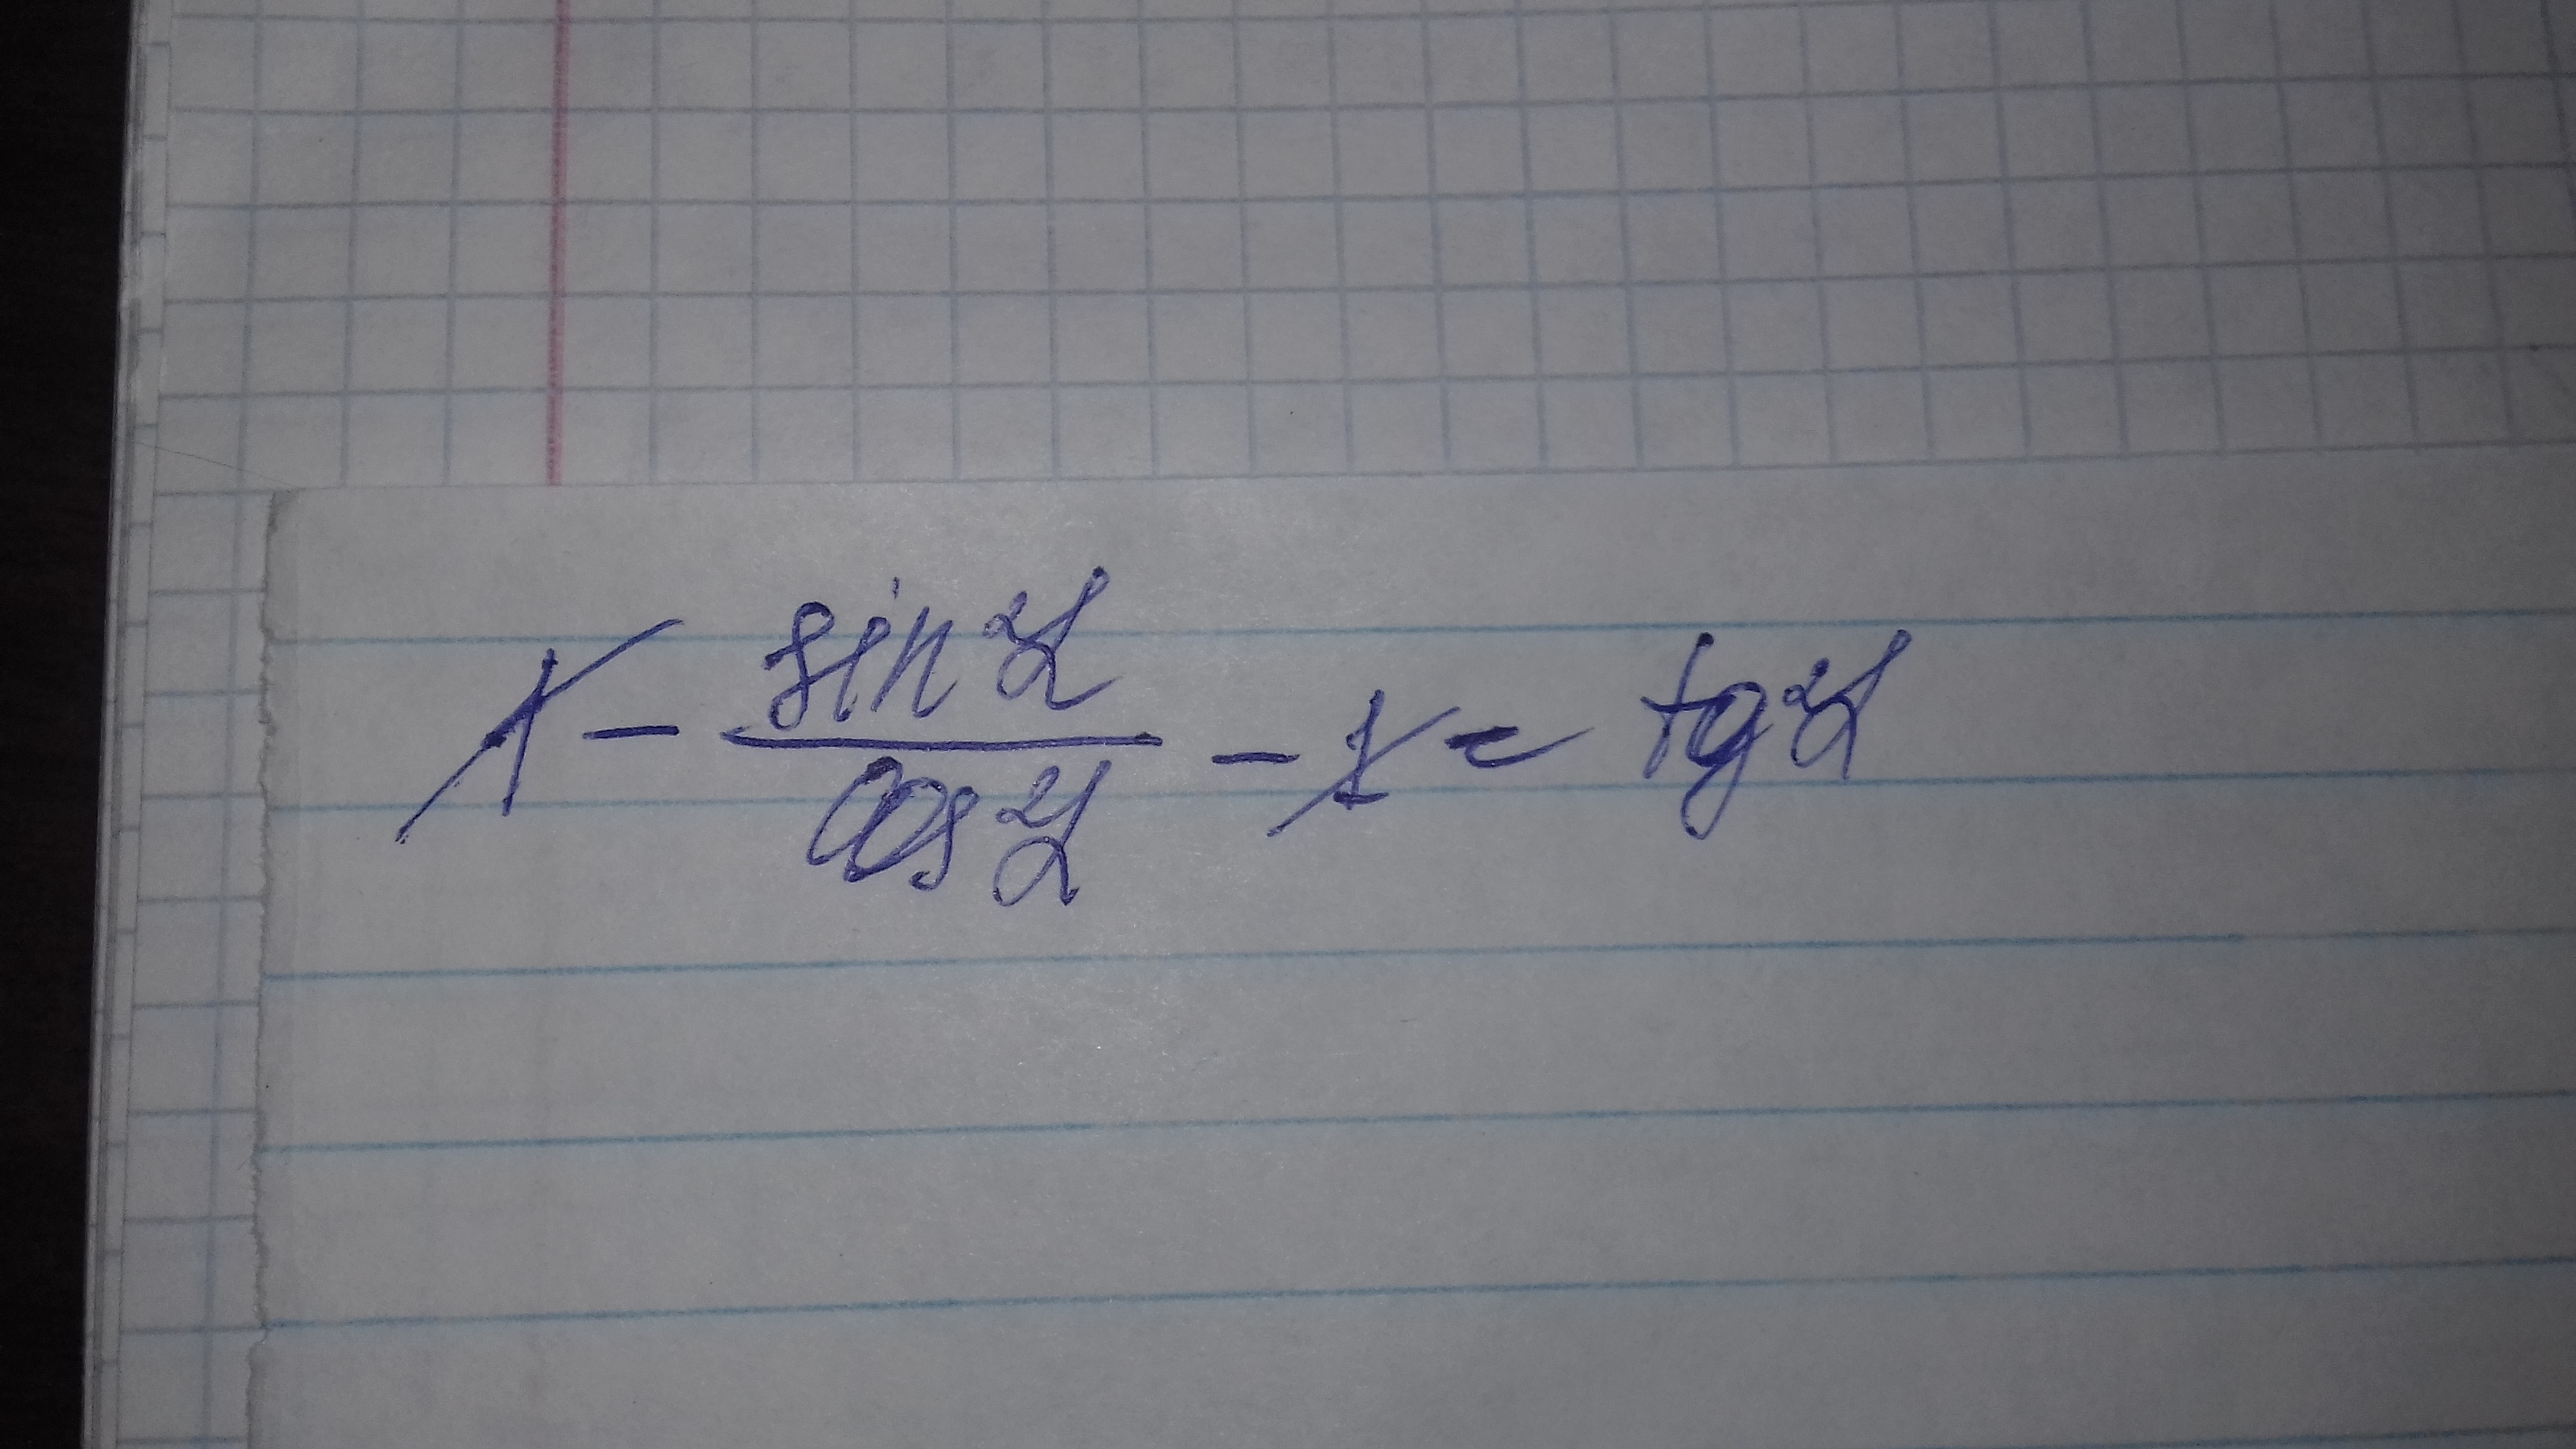 1 - sin²α / cos²α - 1 = tg²α